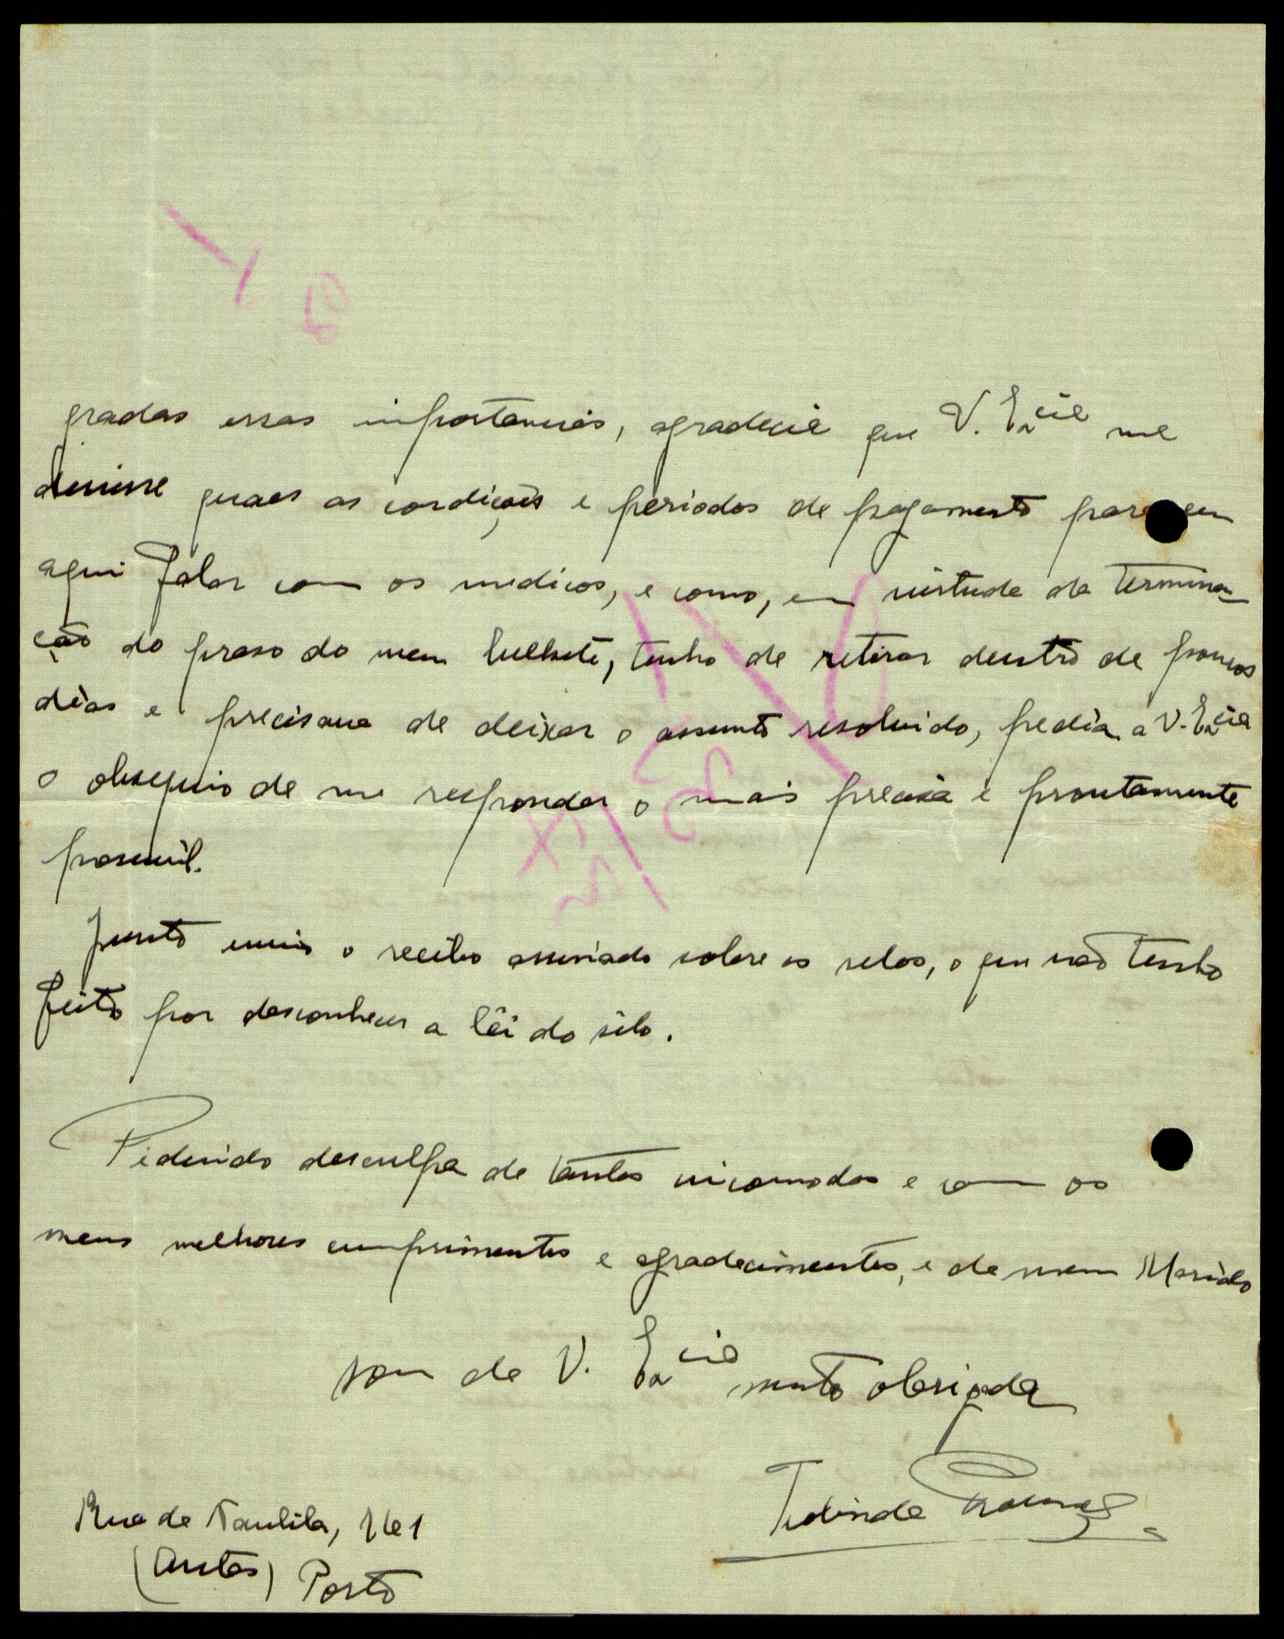 gradas essas importancias, agradecia que V. Ex.cia me
dissesse quaes as condições e periodos de pagamento para eu
aqui falar com os medicos, e como, em virtude da termina-
ção do praso do meu bilhete, tenho de retirar dentro de poucos
dias e precisava de deixar o assunto resolvido, pedia a V. Ex.cia
o obsequio de me responder o mais precisa e prontamente
possivel.
Junto envio o recibo assinado sobre os selos, o que não tenho
feito por desconhecer a lei do sêlo.
Pedindo desculpa de tantos incomodos e com os
meus melhores cumprimentos e agradecimentos, e de meu Marido
sou de V. Ex.cia muito obrigada
Rua de Naulila, 161
(Antas) Porto